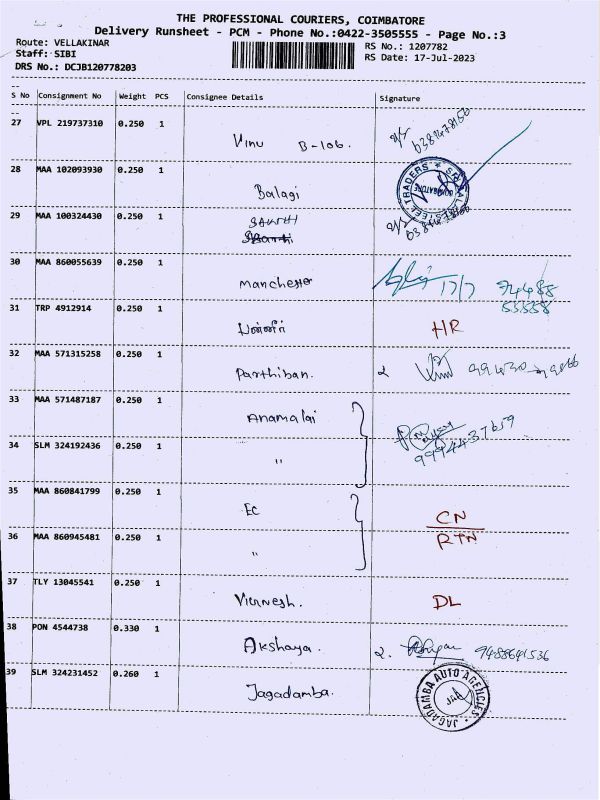 THE PROFESSIONAL COURIERS, COIMBATORE
Delivery Runsheet - PCM - Phone No.:0422-3505555 - Page No.:3
Route: VELLAKINAR RS No.: 1207782
Staff: SIBI RS Date: 17-Jul-2023
DRS No.: DCJB120778203
S No Consignment No Weight PCS Consignee Details Signature
27 VPL 219737310 0.250 1
Vinu B-106.
28 MAA 102093930 0.250 1
Balagi
SAKTHI STEEL TRADERS * COIMBATORE
29 MAA 100324430 0.250 1
30 MAA 860055639 0.250 1
Manchester 17/7 94488
55558
31 TRP 4912914 0.250 1
HR
32 MAA 571315258 0.250 1
Parthiban. 2
33 MAA 571487187 0.250 1
Anamalai
9994437659
34 SLM 324192436 0.250 1
"
35 MAA 860841799 0.250 1
EC CN
36 MAA 860945481 0.250 1
" RTN
37 TLY 13045541 0.250 1
Viknesh. DL
38 PON 4544738 0.330 1
Akshaya. 2. 9488641536
39 SLM 324231452 0.260 1
Jagadamba.
JAGADAMBA AUTO AGENCIES